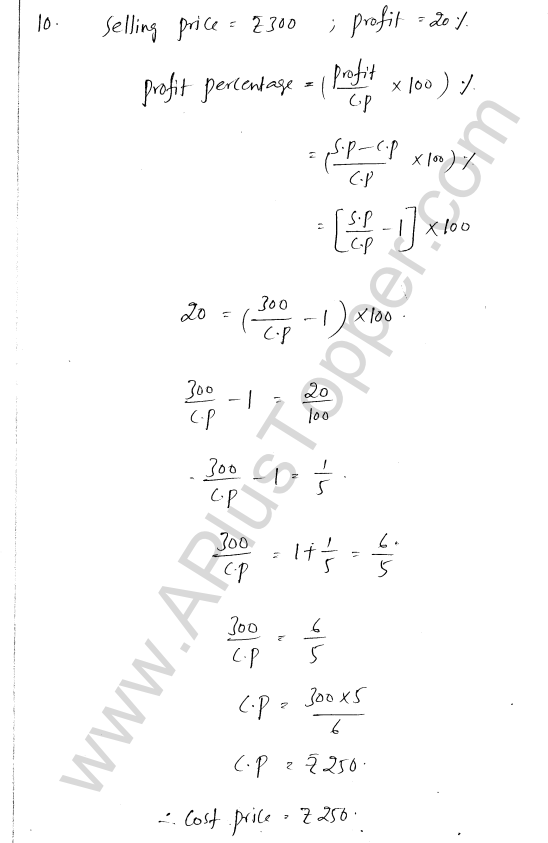 10. Selling price = ₹300 ; profit = 20%
profit percentage = (profit/C.P × 100) %
= (S.P - C.P/C.P × 100) %
= [S.P/C.P - 1] × 100
20 = (300/C.P - 1) × 100.
300/C.P - 1 = 20/100
300/C.P - 1 = 1/5.
300/C.P = 1 + 1/5 = 6/5.
300/C.P = 6/5
C.P = 300 × 5/6
C.P = ₹250.
∴ Cost price = ₹250.
www.APlusTopper.com